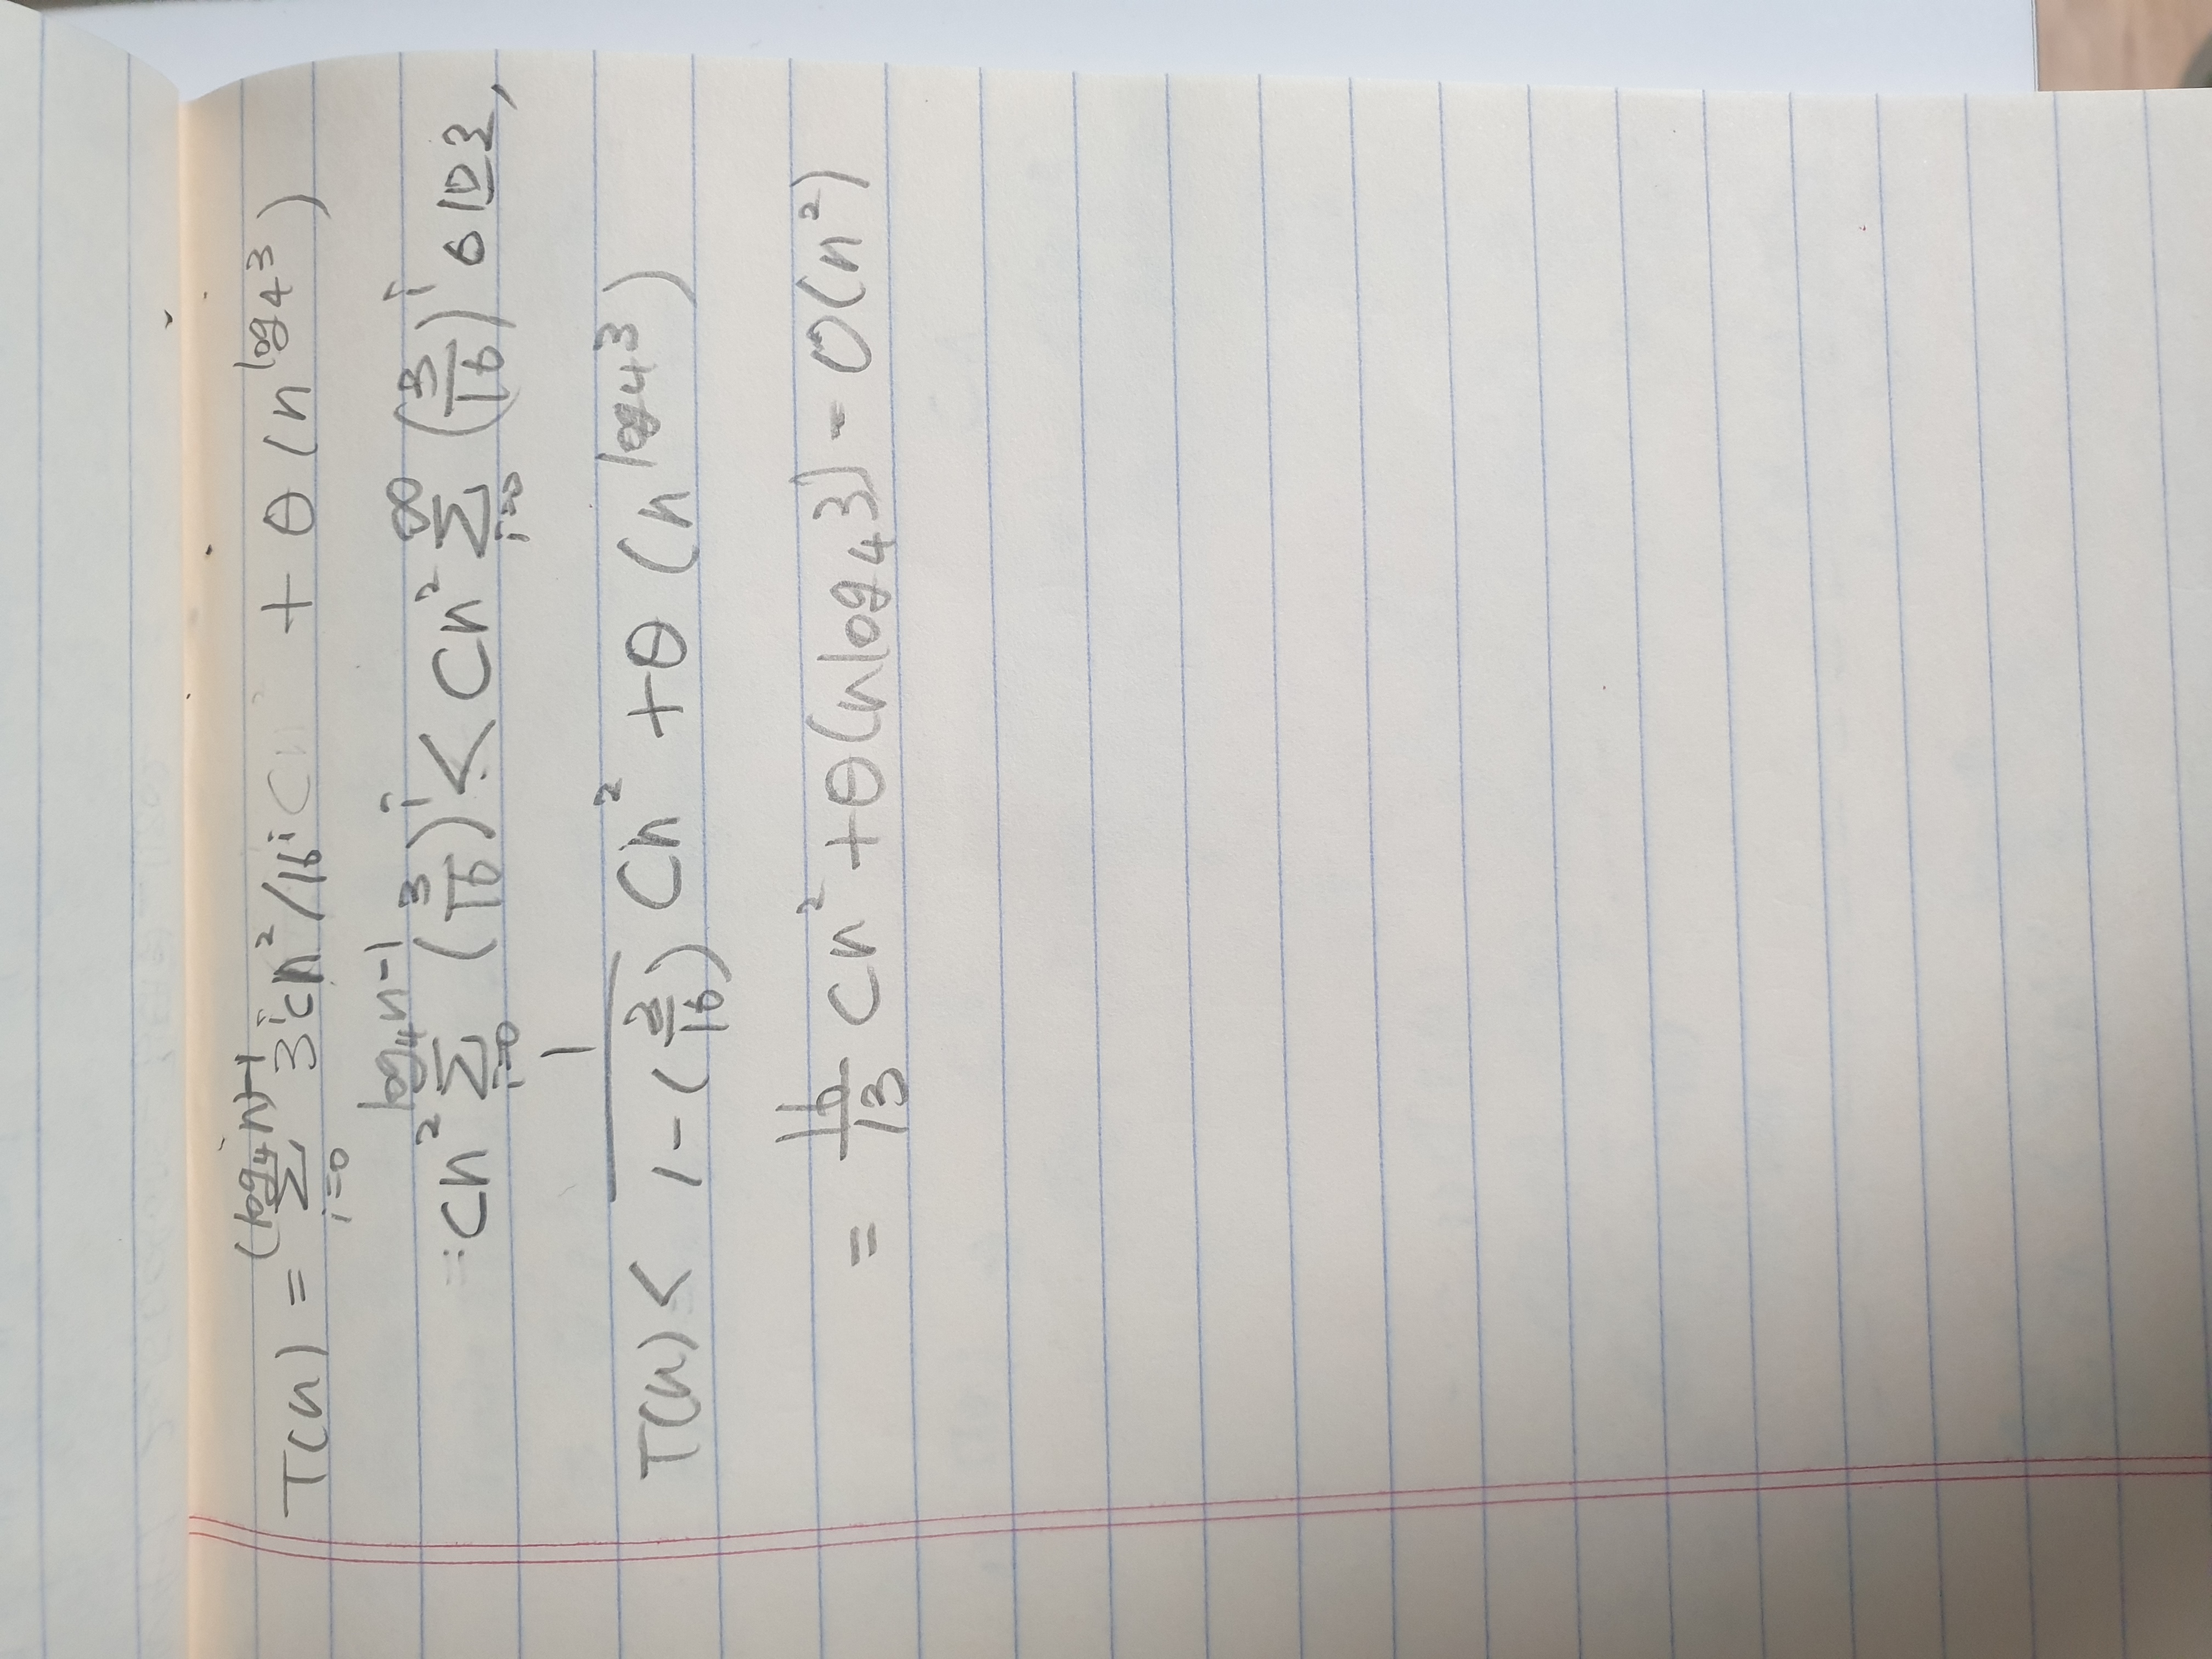 T(n) = Σ_{i=0}^{(log₄n)-1} 3ⁱcn²/16ⁱ + θ(n^{log₄3})
= Cn² Σ_{i=0}^{log₄n-1} (3/16)ⁱ < Cn² Σ_{i=0}^{∞} (3/16)ⁱ 이므로,
T(n) < 1/(1-(3/16)) Cn² + θ(n^{log₄3})
= 16/13 Cn² + θ(nlog₄3) = O(n²)